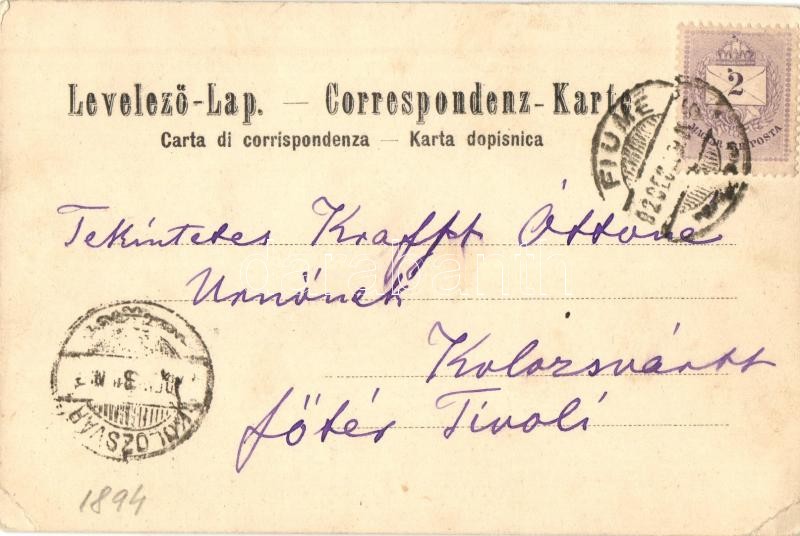 Levelező-Lap. — Correspondenz-Karte
Carta di corrispondenza — Karta dopisnica
2
FIUME
Tekintetes Krafft Ottóne
Urnőnek
Kolozsvártt
főtér Tivoli
KOLOZSVÁR
1894